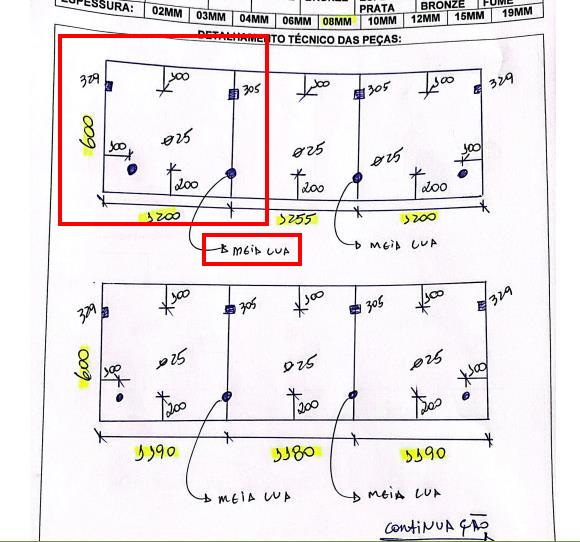 ESPESSURA: 02MM 03MM 04MM 06MM 08MM 10MM 12MM 15MM 19MM
PRATA BRONZE FUMÊ
DETALHAMENTO TÉCNICO DAS PEÇAS:
329 100 305 100 305 100 329
600
100 ø25 ø25 ø25 100
200 200 200
1200 1255 1200
MEIA LUA MEIA LUA
329 100 305 100 305 100 329
600
100 ø25 ø25 ø25 100
200 200 200
1190 1180 1190
MEIA LUA MEIA LUA
CONTINUAÇÃO